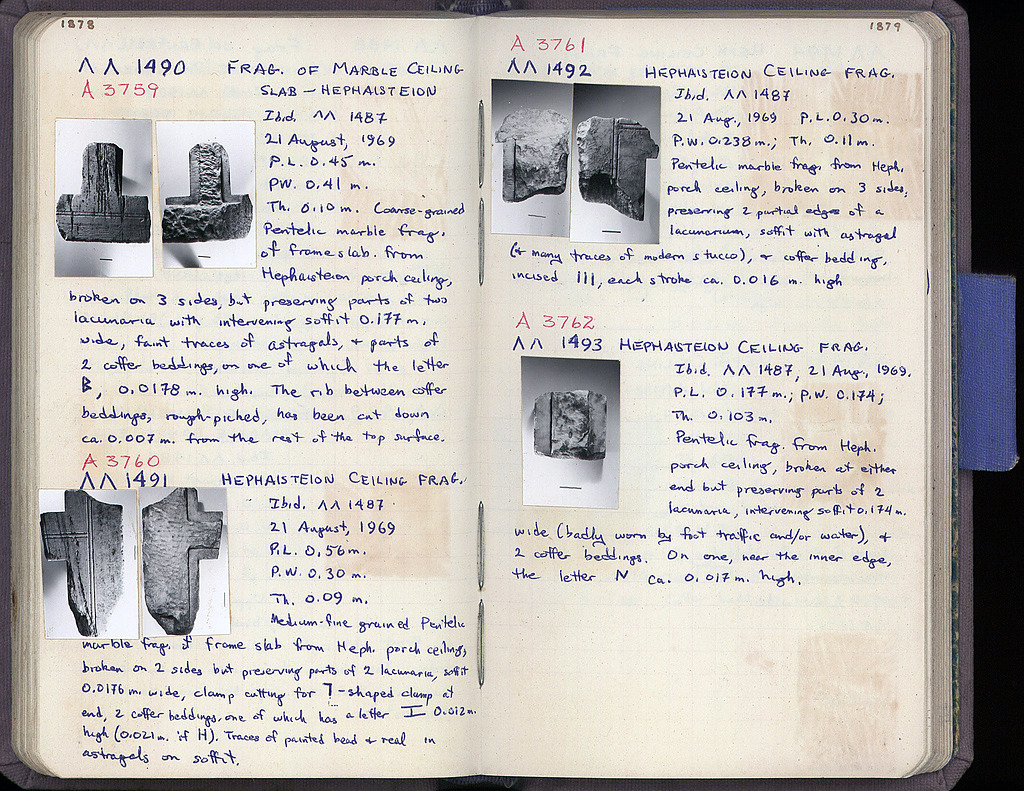 1878
ΛΛ 1490 FRAG. OF MARBLE CEILING
A 3759 SLAB – HEPHAISTEION
Ibid. ΛΛ 1487
21 August, 1969
P.L. 0.45 m.
PW. 0.41 m.
Th. 0.10 m. Coarse-grained
Pentelic marble frag.
of frame slab. from
Hephaisteion porch ceiling,
broken on 3 sides, but preserving parts of two
lacunaria with intervening soffit 0.177 m.
wide, faint traces of astragals, & parts of
2 coffer beddings, on one of which the letter
B, 0.0178 m. high. The rib between coffer
beddings, rough-picked, has been cut down
ca. 0.007 m. from the rest of the top surface.
A 3760
ΛΛ 1491 HEPHAISTEION CEILING FRAG.
Ibid. ΛΛ 1487
21 August, 1969
P.L. 0.56m.
P.W. 0.30 m.
Th. 0.09 m.
Medium-fine grained Pentelic
marble frag. of frame slab from Heph. porch ceiling,
broken on 2 sides but preserving parts of 2 lacunaria, soffit
0.0176 m. wide, clamp cutting for ㄱ-shaped clamp at
end, 2 coffer beddings, one of which has a letter I 0.012m.
high (0.021m. if H). Traces of painted bead & reel in
astragals on soffit.
1879
A 3761
ΛΛ 1492 HEPHAISTEION CEILING FRAG.
Ibid. ΛΛ 1487
21 Aug., 1969 P.L. 0.30 m.
P.W. 0.238 m.; Th. 0.11 m.
Pentelic marble frag. from Heph.
porch ceiling, broken on 3 sides,
preserving 2 partial edges of a
lacunarium, soffit with astragal
(& many traces of modern stucco), & coffer bedding,
incised III, each stroke ca. 0.016 m. high
A 3762
ΛΛ 1493 HEPHAISTEION CEILING FRAG.
Ibid. ΛΛ 1487, 21 Aug., 1969.
P.L. 0.177 m.; P.W. 0.174;
Th. 0.103 m.
Pentelic frag. from Heph.
porch ceiling, broken at either
end but preserving parts of 2
lacunaria, intervening soffit 0.174 m.
wide (badly worn by foot traffic and/or water), &
2 coffer beddings. On one, near the inner edge,
the letter N ca. 0.017 m. high.